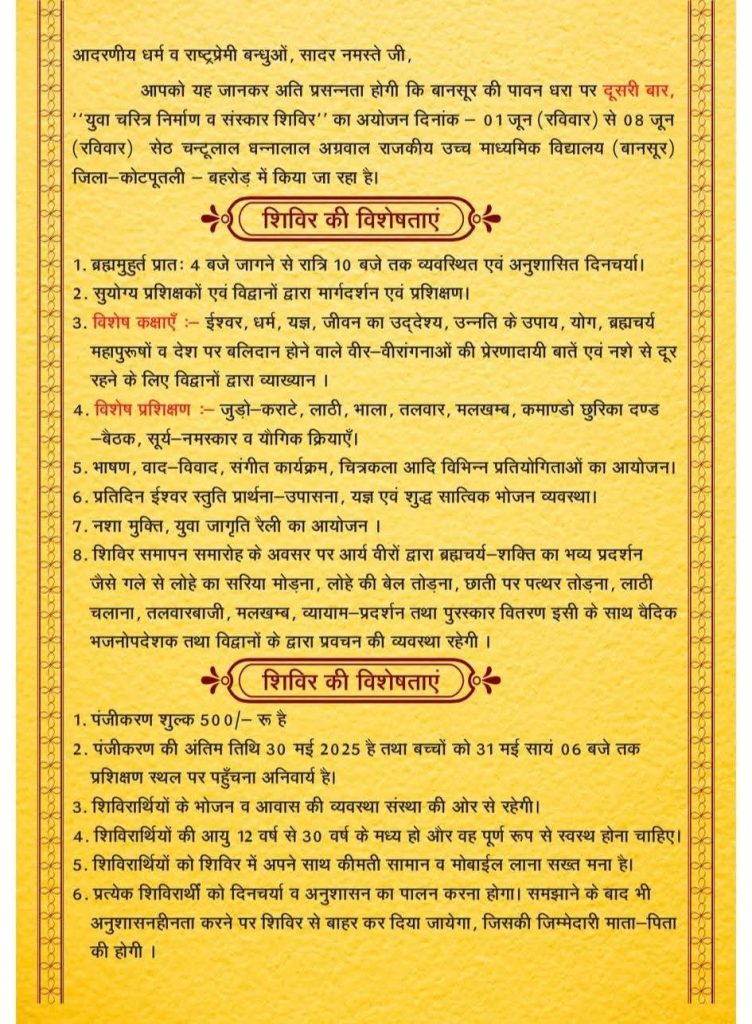 आदरणीय धर्म व राष्ट्रप्रेमी बन्धुओं, सादर नमस्ते जी,
आपको यह जानकर अति प्रसन्नता होगी कि बानसूर की पावन धरा पर दूसरी बार,
''युवा चरित्र निर्माण व संस्कार शिविर'' का अयोजन दिनांक – 01 जून (रविवार) से 08 जून
(रविवार) सेठ चन्टूलाल घन्नालाल अग्रवाल राजकीय उच्च माध्यमिक विद्यालय (बानसूर)
जिला–कोटपूतली – बहरोड़ में किया जा रहा है।
शिविर की विशेषताएं
1. ब्रह्ममुहुर्त प्रातः 4 बजे जागने से रात्रि 10 बजे तक व्यवस्थित एवं अनुशासित दिनचर्या।
2. सुयोग्य प्रशिक्षकों एवं विद्वानों द्वारा मार्गदर्शन एवं प्रशिक्षण।
3. विशेष कक्षाएँ :– ईश्वर, धर्म, यज्ञ, जीवन का उद्देश्य, उन्नति के उपाय, योग, ब्रह्मचर्य
महापुरूषों व देश पर बलिदान होने वाले वीर–वीरांगनाओं की प्रेरणादायी बातें एवं नशे से दूर
रहने के लिए विद्वानों द्वारा व्याख्यान ।
4. विशेष प्रशिक्षण :– जुड़ो–कराटे, लाठी, भाला, तलवार, मलखम्ब, कमाण्डो छुरिका दण्ड
–बैठक, सूर्य–नमस्कार व यौगिक क्रियाएँ।
5. भाषण, वाद–विवाद, संगीत कार्यक्रम, चित्रकला आदि विभिन्न प्रतियोगिताओं का आयोजन।
6. प्रतिदिन ईश्वर स्तुति प्रार्थना–उपासना, यज्ञ एवं शुद्ध सात्विक भोजन व्यवस्था।
7. नशा मुक्ति, युवा जागृति रैली का आयोजन ।
8. शिविर समापन समारोह के अवसर पर आर्य वीरों द्वारा ब्रह्मचर्य–शक्ति का भव्य प्रदर्शन
जैसे गले से लोहे का सरिया मोड़ना, लोहे की बेल तोड़ना, छाती पर पत्थर तोड़ना, लाठी
चलाना, तलवारबाजी, मलखम्ब, व्यायाम–प्रदर्शन तथा पुरस्कार वितरण इसी के साथ वैदिक
भजनोपदेशक तथा विद्वानों के द्वारा प्रवचन की व्यवस्था रहेगी ।
शिविर की विशेषताएं
1. पंजीकरण शुल्क 500/– रू है
2. पंजीकरण की अंतिम तिथि 30 मई 2025 है तथा बच्चों को 31 मई सायं 06 बजे तक
प्रशिक्षण स्थल पर पहुँचना अनिवार्य है।
3. शिविरार्थियों के भोजन व आवास की व्यवस्था संस्था की ओर से रहेगी।
4. शिविरार्थियों की आयु 12 वर्ष से 30 वर्ष के मध्य हो और वह पूर्ण रूप से स्वस्थ होना चाहिए।
5. शिविरार्थियों को शिविर में अपने साथ कीमती सामान व मोबाईल लाना सख्त मना है।
6. प्रत्येक शिविरार्थी को दिनचर्या व अनुशासन का पालन करना होगा। समझाने के बाद भी
अनुशासनहीनता करने पर शिविर से बाहर कर दिया जायेगा, जिसकी जिम्मेदारी माता–पिता
की होगी ।